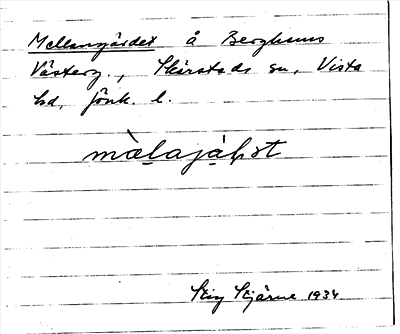 Mellangärdet å Berghems
Västerg., Skärstads sn, Vista
hd, Jönk. l.
mæ̀lajáḷst
Stig Stjärne 1934